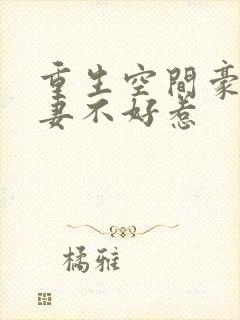 重生空間豪
妻不好惹
橘雅